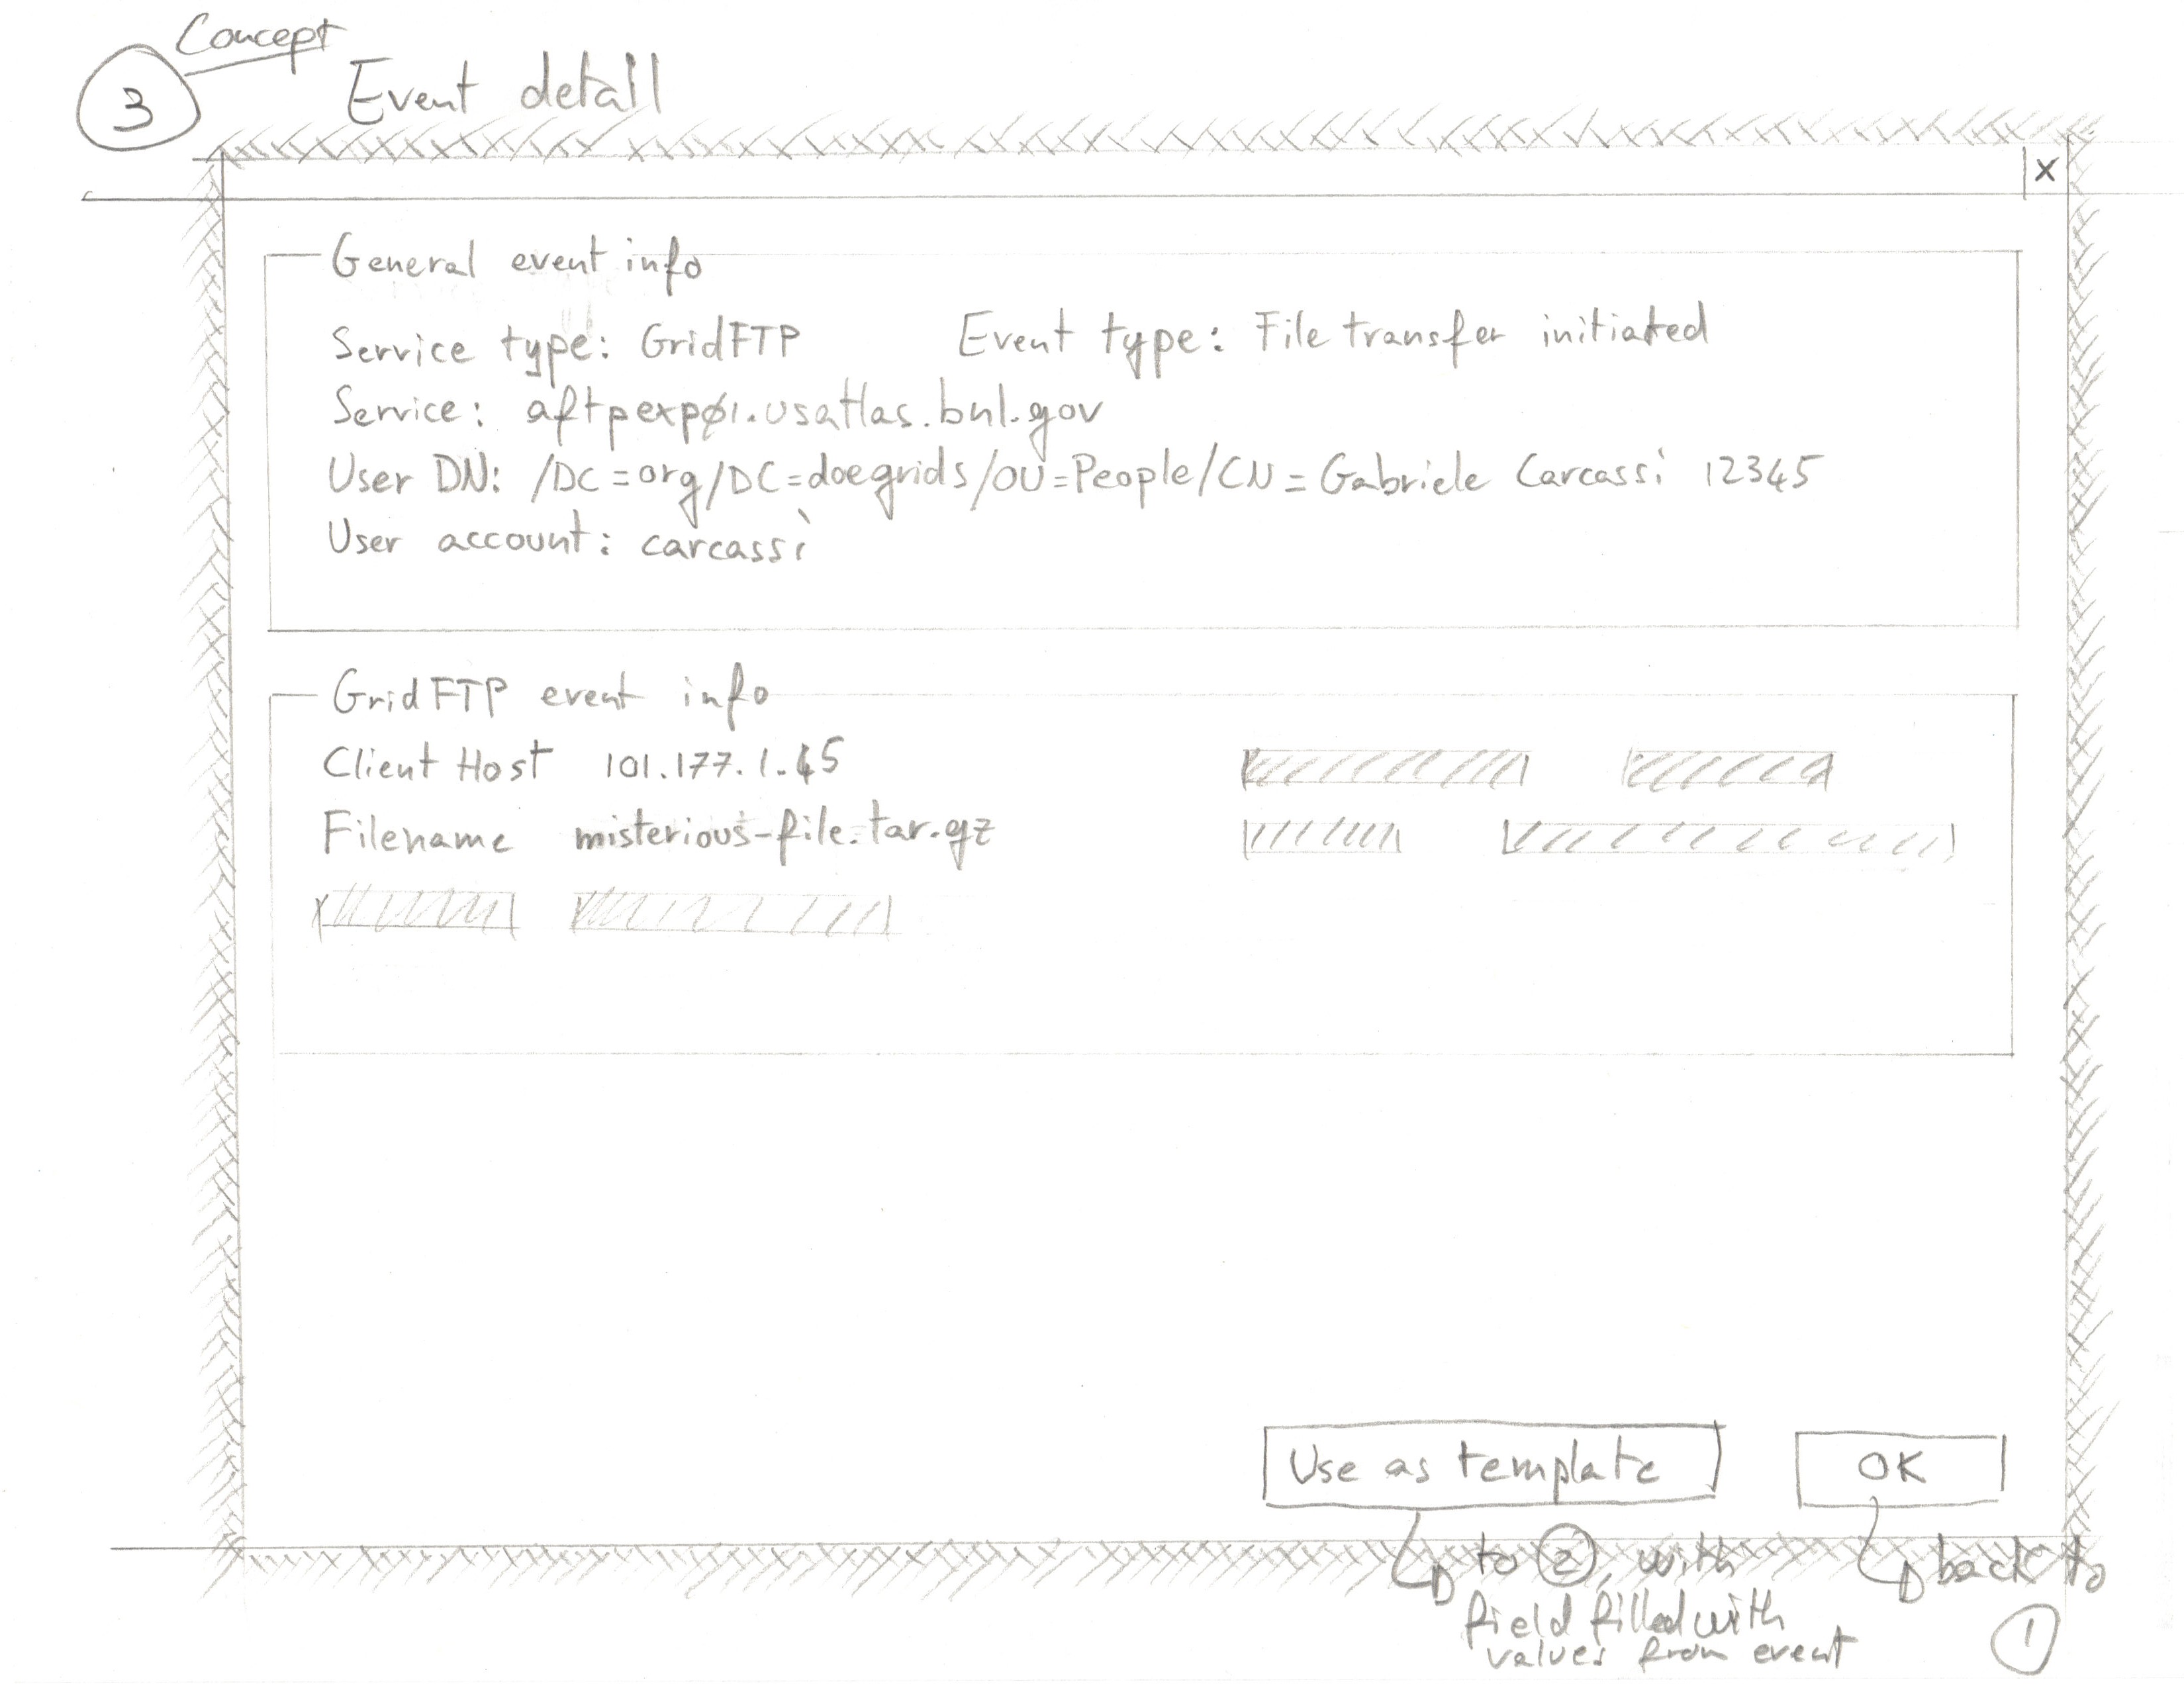 Concept
3
Event detail
X
General event info
Service type: GridFTP Event type: File transfer initiated
Service: aftpexp01.usatlas.bnl.gov
User DN: /DC=org/DC=doegrids/OU=People/CN=Gabriele Carcassi 12345
User account: carcassi
GridFTP event info
Client Host 101.177.1.45
Filename misterious-file.tar.gz
Use as template
OK
to 2, with
field filled with
values from event
back to
1